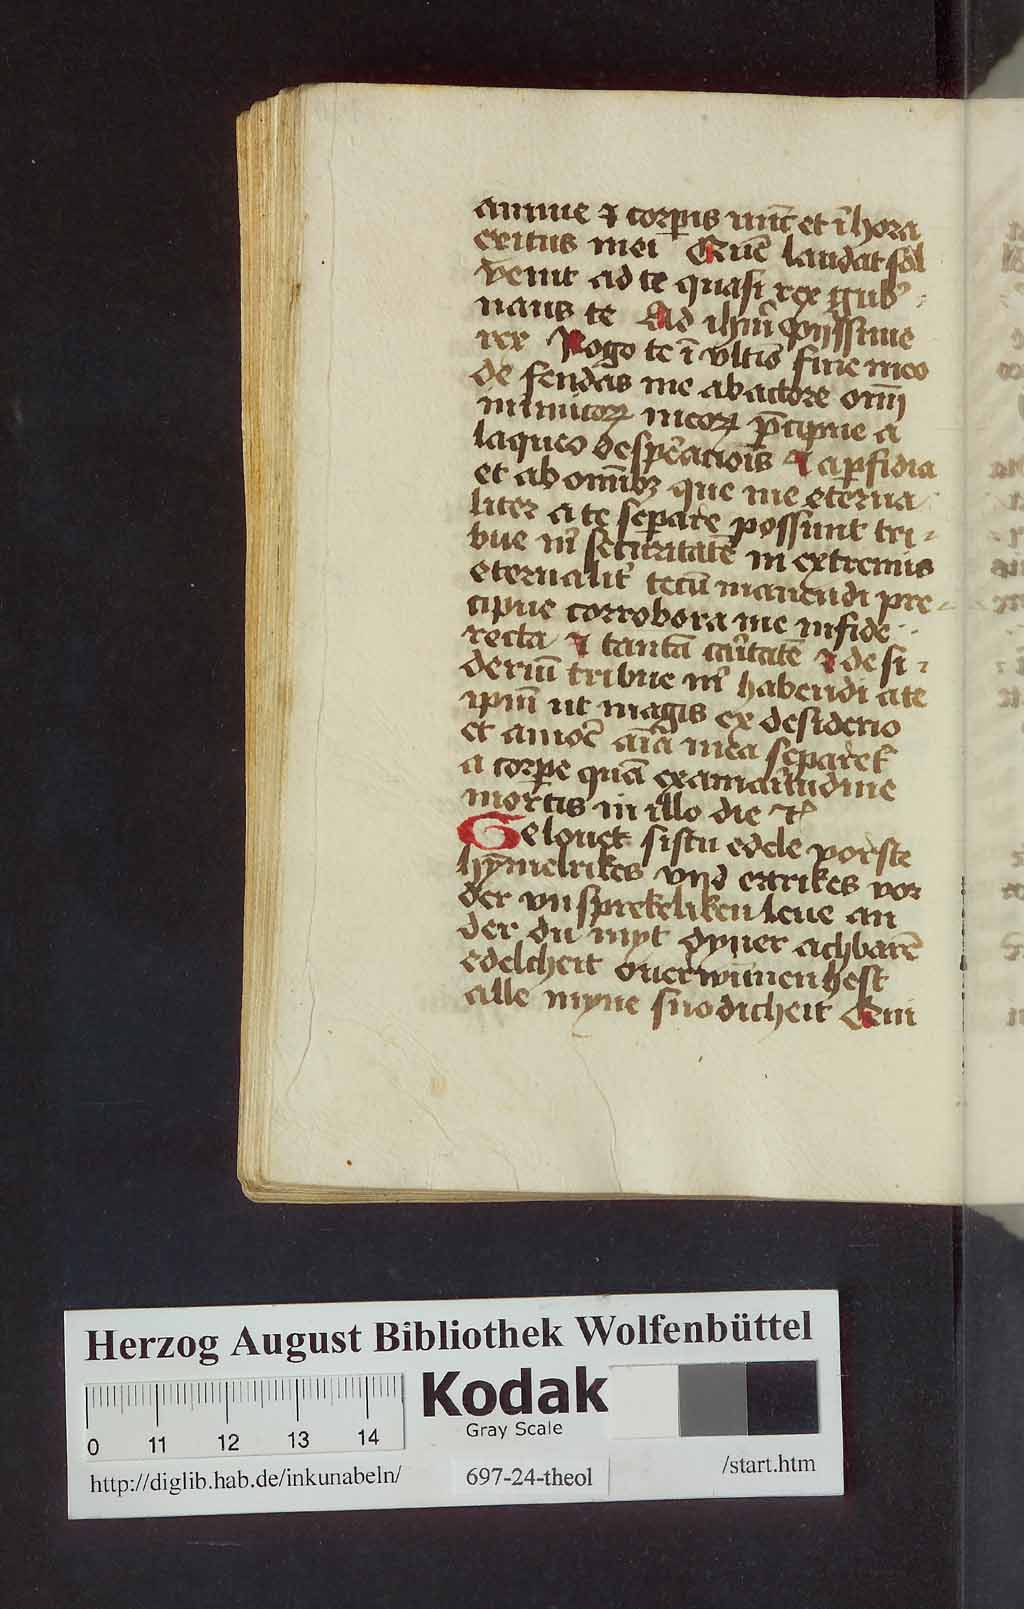 anime ⁊ corꝑis nūc et ī hora
exitus mei Quē laudat sol
venit ad te quasi rex gub̾
nans te Ad ihm̄ pijssime
rex Rogo te ī vltīo fine meo
de fendas me ab actore om̄i
inimicoꝝ meoꝝ p̄cipue a
laqueo desꝑacōis ⁊ a ꝑfidia
et ab om̄ibꝫ que me eterna
liter a te seꝑare possunt tri-
bue m̄ securitatē in extremis
eternalit̾ tecū manendi pre-
cipue corrobora me in fide
recta ⁊ tantā cāritatē ⁊ desi-
deriū tribue m̄ habendi a te
ip̄m ut magis ex desiderio
et amore aīa mea separet᷑
a corꝑe quā ex amaritudine
mortis in illo die ⁊c̄
Gelouet sistu edele vorste
hȳmelrikes vnd ertrikes vor
der vnsprekeliken leue an
der du myt dyner achbarē
edelcheit ouerwūnen hest
alle myne snodicheit Qui
Herzog August Bibliothek Wolfenbüttel
Kodak
Gray Scale
0 11 12 13 14
http://diglib.hab.de/inkunabeln/
697-24-theol
/start.htm